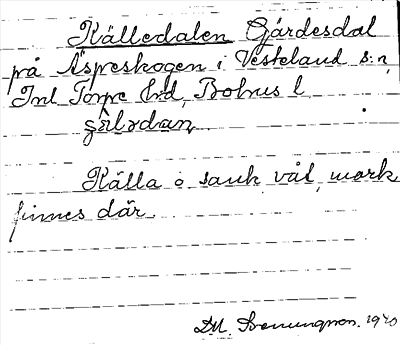 Källedalen Gårdesdal
på Äspeskogen i Västeland s:n,
Inl Torpe hd, Bohus l
çälədan
Källa o sank våt mark
finnes där
1940